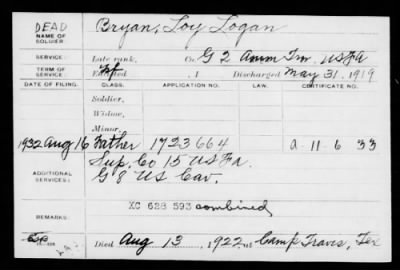 DEAD
NAME OF SOLDIER:
Bryan, Loy Logan
SERVICE:
Late rank, Co. G 2 Amm Trn. US FA
TERM OF SERVICE:
Enlisted , 1 Discharged May 31, 1919
DATE OF FILING. CLASS. APPLICATION NO. LAW. CERTIFICATE NO.
Soldier,
Widow,
Minor,
1932 Aug 16 Father 1723664 a-11-6 33
ADDITIONAL SERVICES:
Sup. Co 15 US Fa.
G 8 US Cav.
REMARKS:
XC 628 593 combined
Died Aug 13, 1922, at Camp Travis, Tex